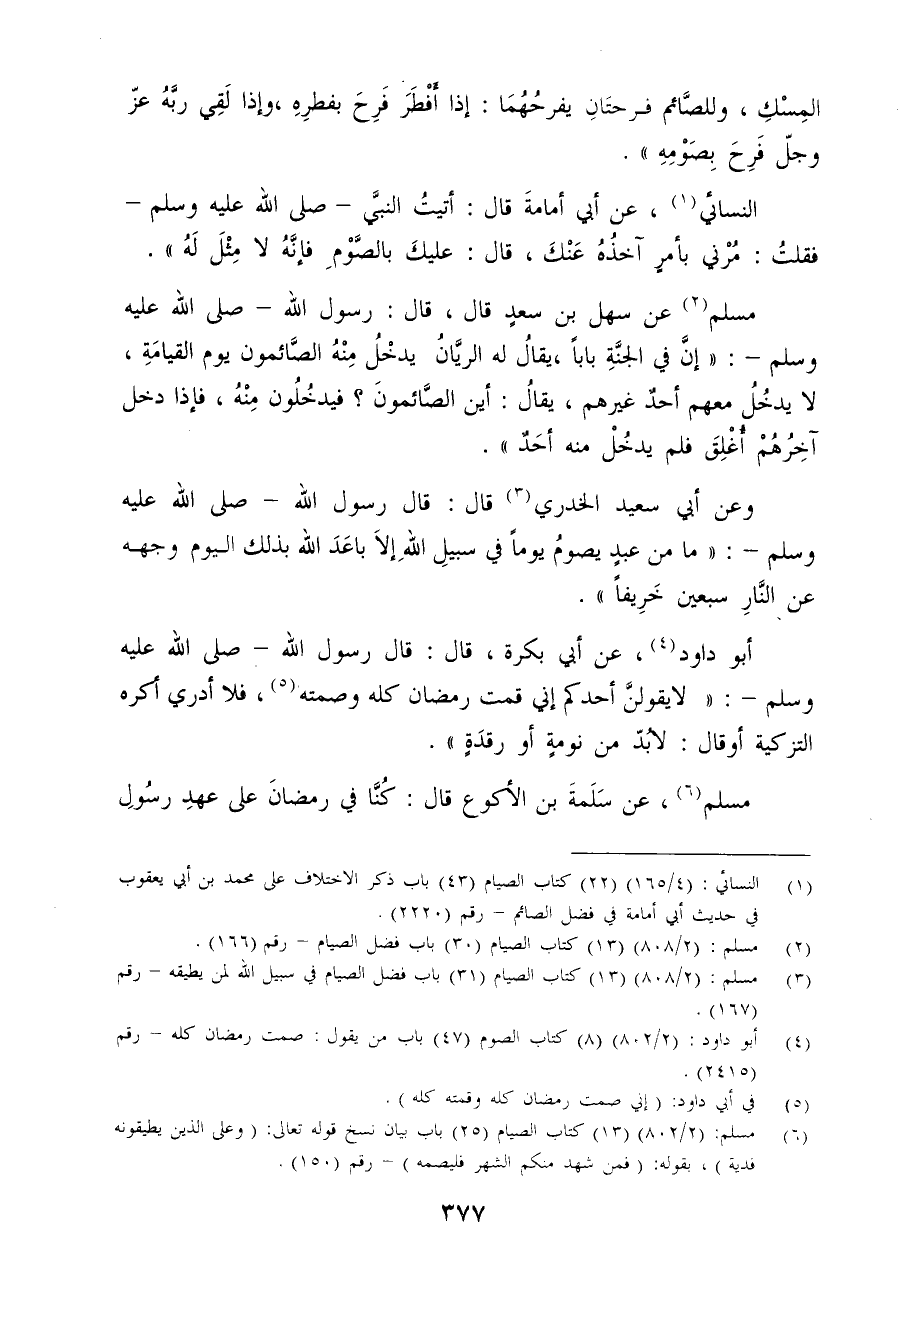 المِسْكِ ، وللصَّائم فـرحتَانِ يفرحُهُمَا : إذا أَفْطَرَ فَرِحَ بفطرِهِ ،وإذا لَقِي ربَّهُ عزّ
وجلّ فَرِحَ بِصَوْمِهِ » .
النسائيُّ(١) ، عن أبي أمامةَ قال : أتيتُ النبيَّ – صلى الله عليه وسلم –
فقلتُ : مُرْني بأمرٍ آخذُهُ عَنْكَ ، قال : عليكَ بالصَّوْمِ فإنَّهُ لا مِثْلَ لَهُ » .
مسلم(٢) عن سهل بن سعدٍ قال ، قال : رسول الله – صلى الله عليه
وسلم – : « إنَّ في الجنَّةِ باباً ،يقالُ له الريَّانُ يدخُلُ مِنْهُ الصَّائمون يوم القيامَةِ ،
لا يدخُلُ معهم أحدٌ غيرهم ، يقالُ : أين الصَّائمونَ ؟ فيدخُلُون مِنْهُ ، فإذا دخل
آخِرُهُمْ أُغْلِقَ فلم يدخُلْ منه أحَدٌ » .
وعن أبي سعيد الخدري(٣) قال : قال رسول الله – صلى الله عليه
وسلم – : « ما من عبدٍ يصومُ يوماً في سبيلِ اللهِ إلاَ باعَدَ الله بذلك اليوم وجهـه
عن النَّارِ سبعين خَرِيفاً » .
أبو داود(٤) ، عن أبي بكرة ، قال : قال رسول الله – صلى الله عليه
وسلم – : « لايقولنَّ أحدكم إني قمت رمضان كله وصمته(٥) ، فلا أدري أكره
التزكية أوقال : لابُدّ من نومةٍ أو رقدَةٍ » .
مسلم(٦) ، عن سَلَمةَ بن الأكوع قال : كُنَّا في رمضانَ على عهدِ رسُولِ
(١) النسائي : (١٦٥/٤) (٢٢) كتاب الصيام (٤٣) باب ذكر الاختلاف على محمد بن أبي يعقوب
في حديث أبي أمامة في فضل الصائم – رقم (٢٢٢٠) .
(٢) مسلم : (٨٠٨/٢) (١٣) كتاب الصيام (٣٠) باب فضل الصيام – رقم (١٦٦) .
(٣) مسلم : (٨٠٨/٢) (١٣) كتاب الصيام (٣١) باب فضل الصيام في سبيل الله لمن يطيقه – رقم
(١٦٧) .
(٤) أبو داود : (٨٠٢/٢) (٨) كتاب الصوم (٤٧) باب من يقول : صمت رمضان كله – رقم
(٢٤١٥) .
(٥) في أبي داود: ( إني صمت رمضان كله وقمته كله ) .
(٦) مسلم: (٨٠٢/٢) (١٣) كتاب الصيام (٢٥) باب بيان نسخ قوله تعالى: ( وعلى الذين يطيقونه
فدية ) ، بقوله: ( فمن شهد منكم الشهر فليصمه ) – رقم (١٥٠) .
٣٧٧